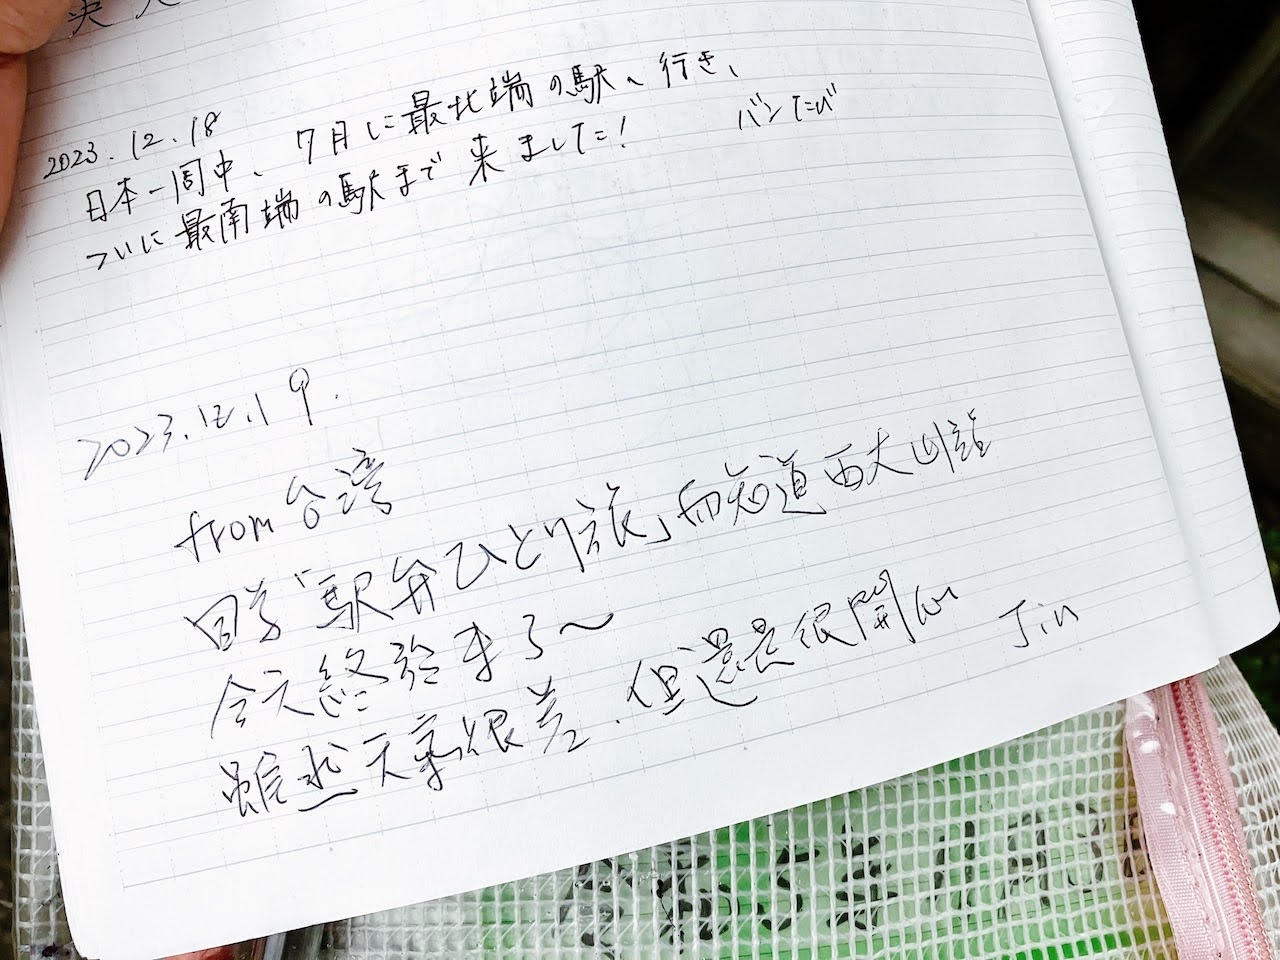 2023.12.18
日本一周中、7月に最北端の駅へ行き、
ついに最南端の駅まで来ました! バンたび
2023.12.19.
from 台湾
因為「駅弁ひとり旅」而知道西大山站
今天終於來了～
雖然天氣很差.但還是很開心 Jin